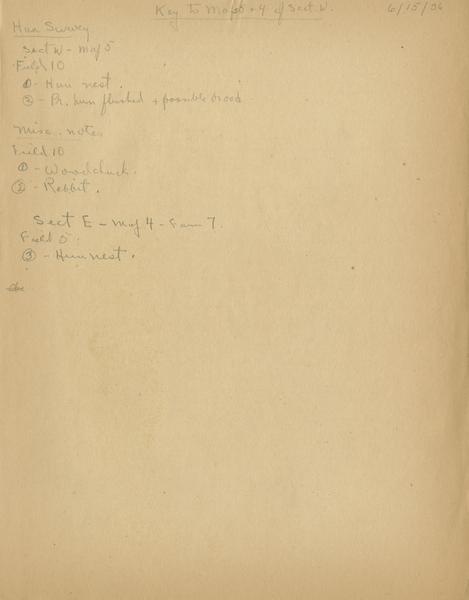 Key to Map 5 + 4 of Sect. W. 6/15/36
Hun Survey
Sect W - Map 5
Field 10
① - Hun nest.
② - Pr. hun flushed + possible brood
Misc. notes
Field 10
① - Woodchuck.
② - Rabbit.
Sect E - Map 4 - Farm 7.
Field 5
③ - Hun nest.